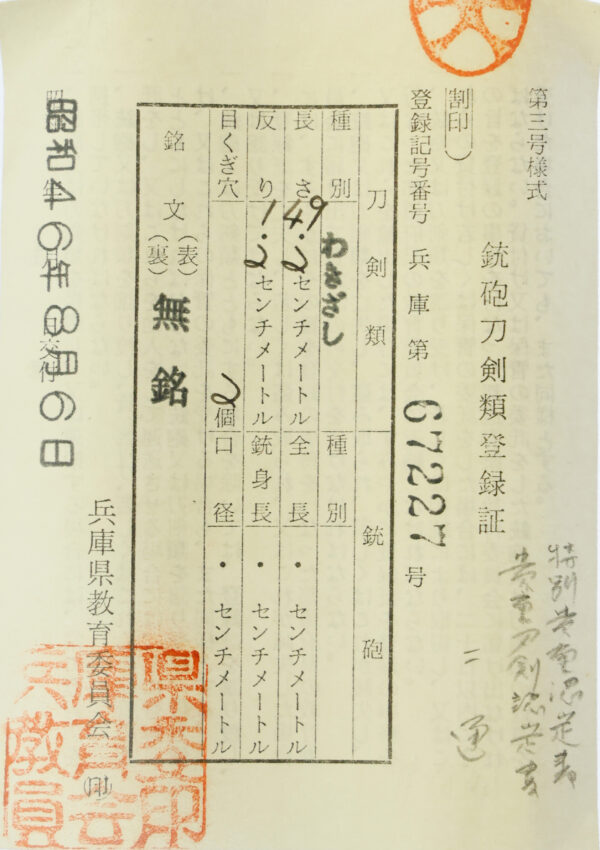 第三号様式
特別貴重認定書
貴重刀剣認定書
二通
銃砲刀剣類登録証
(割印)
登録記号番号 兵庫第 67227 号
刀剣類 銃砲
種別 わきざし 種別
長さ 49.2センチメートル 全長 ・ センチメートル
反り 1.2センチメートル 銃身長 ・ センチメートル
目くぎ穴 2個 口径 ・ センチメートル
銘文 (表)
(裏) 無銘
昭和46年8月6日交付
兵庫県教育委員会 ㊞
兵庫県教育委員会印